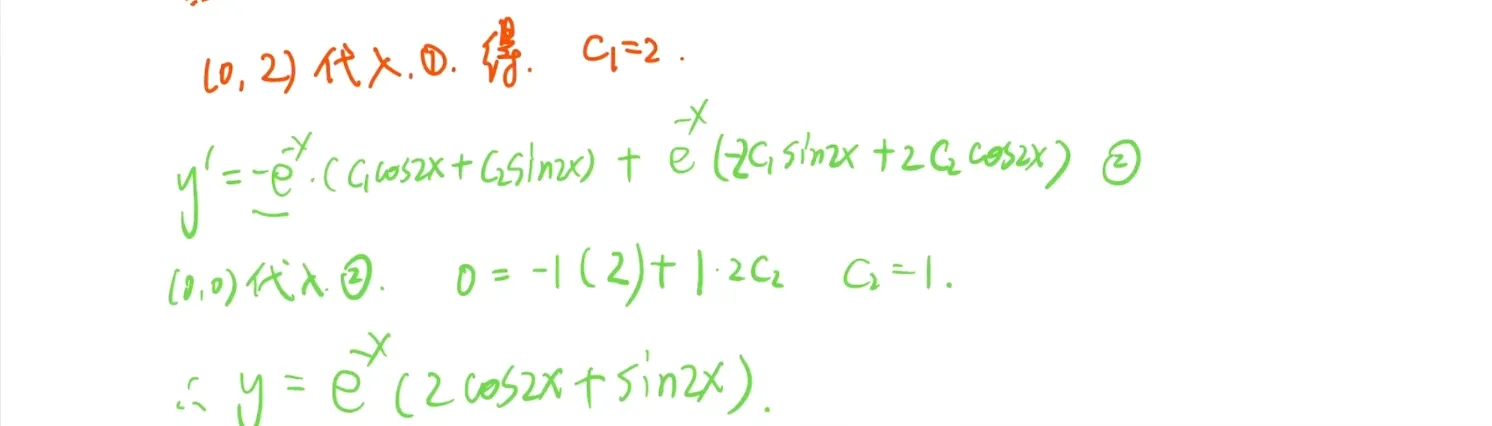 (0, 2) 代入.①. 得. C₁=2.
y' = -e⁻ˣ·(C₁cos2x + C₂sin2x) + e⁻ˣ(-2C₁sin2x + 2C₂cos2x) ②
(0,0)代入.②. 0 = -1(2)+1·2C₂ C₂=1.
∴ y = e⁻ˣ(2cos2x+sin2x).